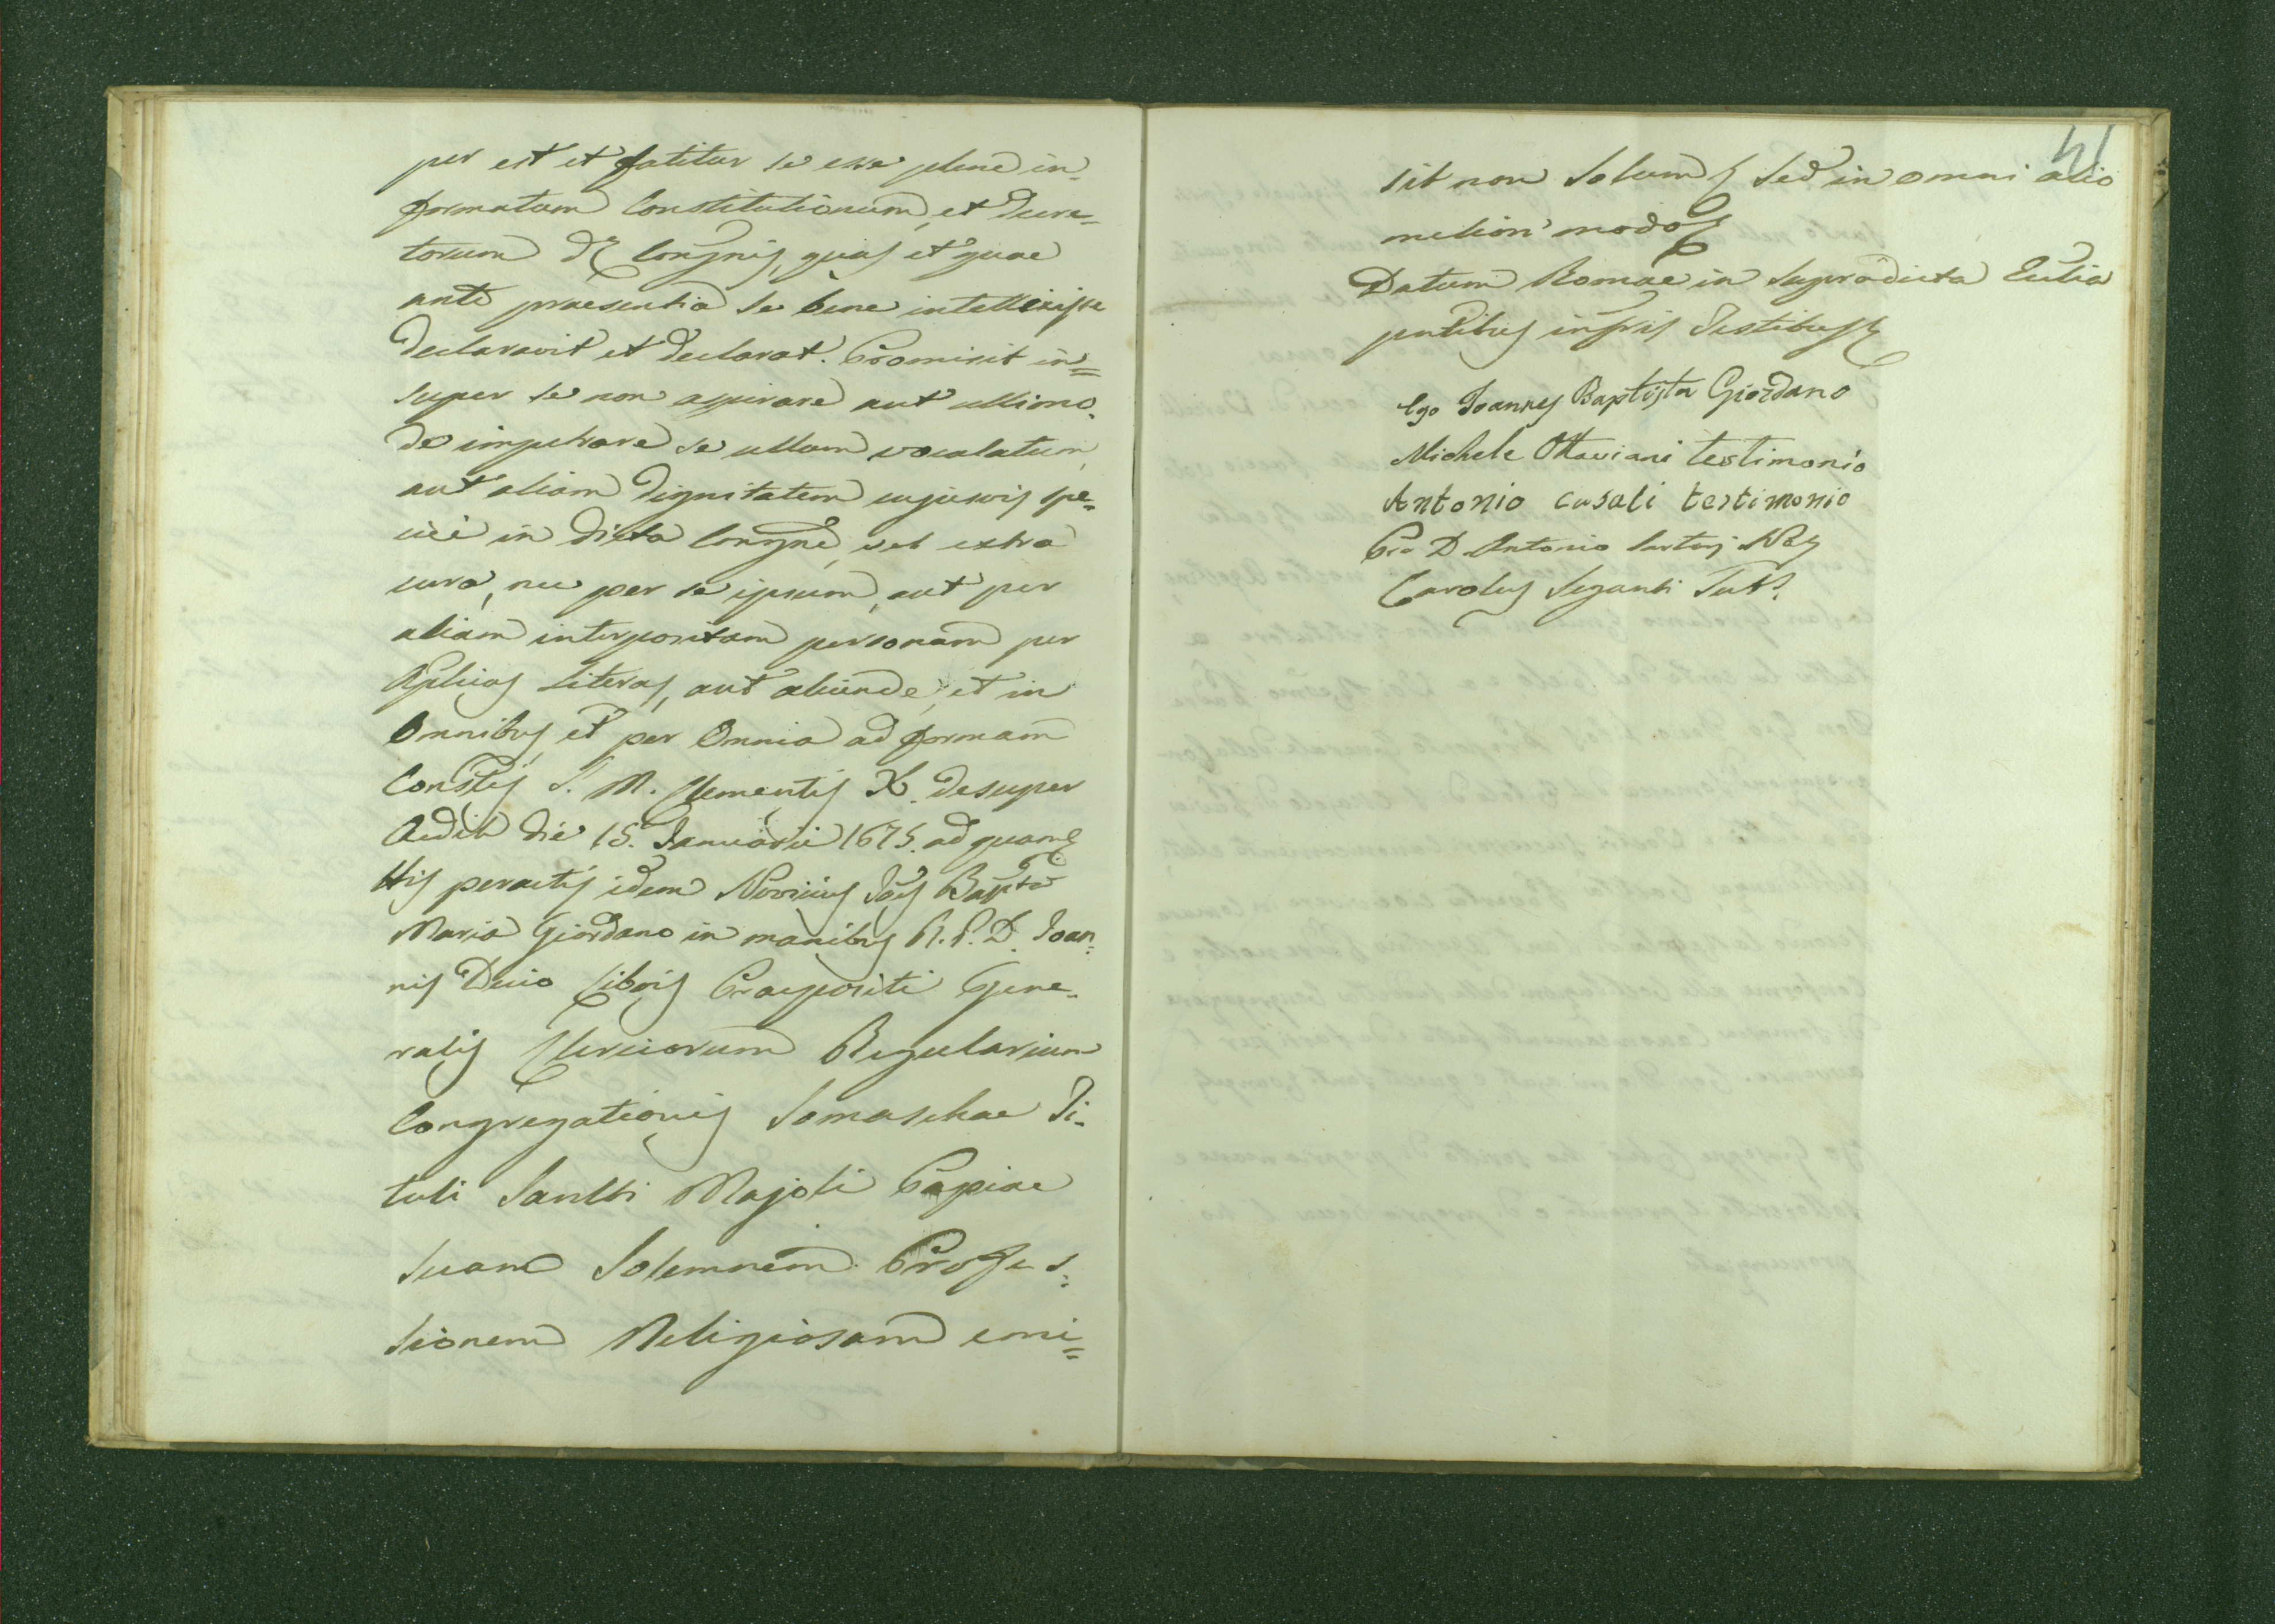 per est et fatetur se esse plene in-
formatum Constitutionum, et Decre=
torum Dę Congnis, quas et quae
ante praesentia se bene intellexisse
declaravit et declarat. Promisit in=
super se non aspirare aut ullimo-
do impetrare se ullam vocalatum,
aut aliam dignitatem cujusvis spe-
ciei in dicta Congne, vel extra
eura, nec per se ipsum, aut per
aliam interpositam personam per
Aplicas Literas, aut aliunde, et in
Omnibus, et per Omnia ad formam
Constis S. M. Clementis X. desuper
Aedit die 15. Januarii 1675. ad quam
His peractis idem Novicius Joes Bapta
Maria Giordano in manibus R. P. D. Joan-
nis Decio Libois Praepositi Gene-
ralis Clericorum Regularium
Congregationis Somaschae Ti-
tuli Sancti Majoli Papiae
suam Solemnem Profes=
sionem Religiosam emi=
41
sit non solum sed in omni alio
meliori modo
Datum Romae in supradicta Eccia
pntibus infris Testibus
Ego Joannes Baptista Giordano
Michele Ottaviani testimonio
Antonio casali testimonio
Pro D. Antonio Not
Carolus Seganti